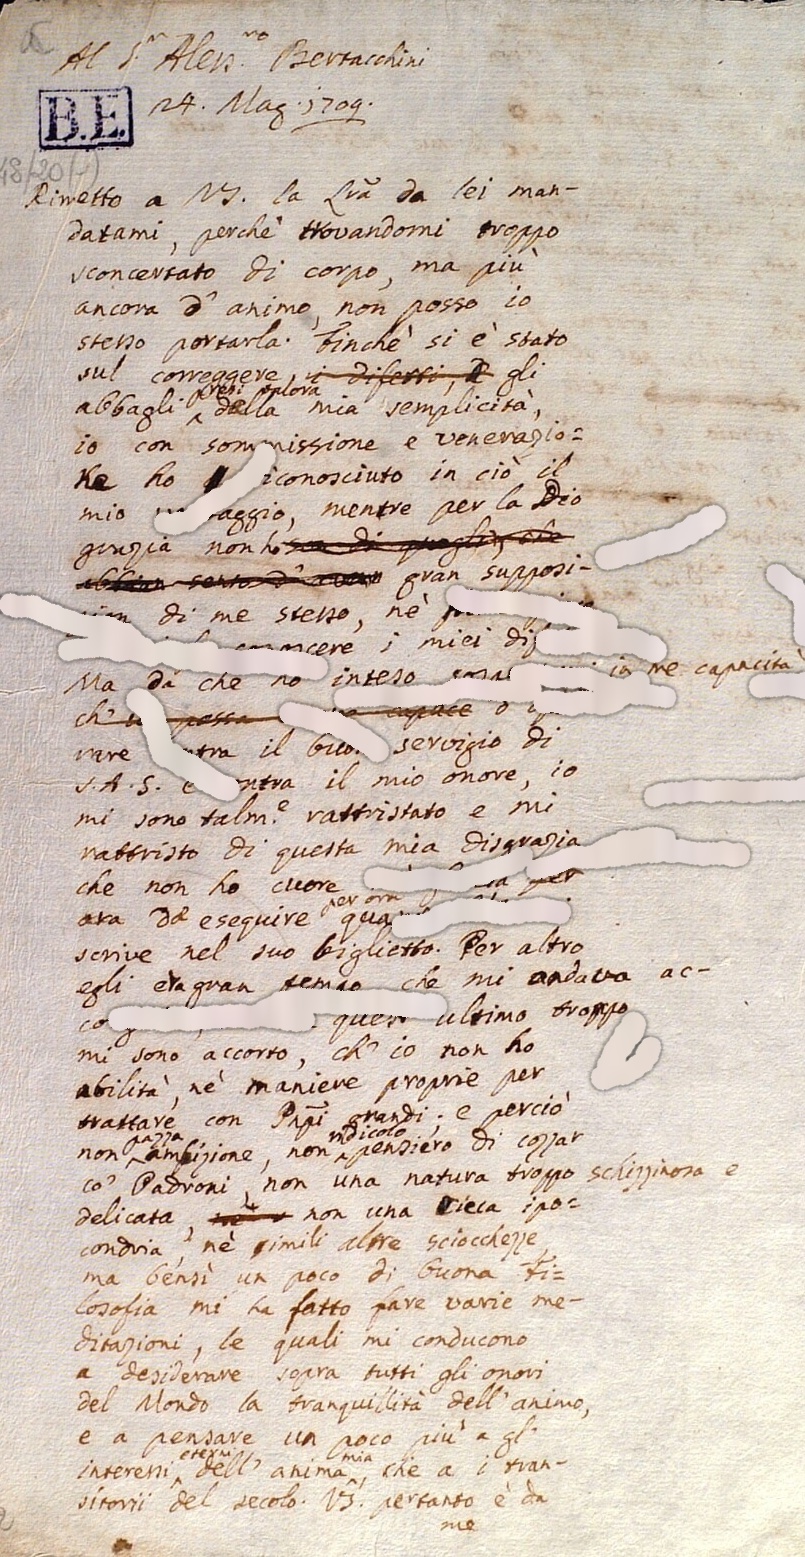 Al S.r Aless.ro Bertacchini
B.E.
24. Mag. 1709.
48/20(1)
Rimetto a VS. la Lrã da lei man-
datami, perchè trovandomi troppo
sconcertato di corpo, ma più
ancora d' animo, non posso io
stesso portarla. Finchè si è stato
sul correggere, i difetti, gli
presi talora
abbagli della mia semplicità,
io con sommissione e venerazio=
ne ho riconosciuto in ciò il
mio mentre per la Dio
grazia non ho
gran supposi-
di me stesso, nè
conoscere i miei
Ma da che ho inteso in me capacità
ch' capace o
vare il buon servigio di
S.A.S. e contra il mio onore, io
mi sono talm.e rattristato e mi
rattristo di questa mia disgrazia
che non ho cuore per
per ora
ora di eseguire
scrive nel suo biglietto. Per altro
egli era gran tempo che mi andava ac-
ultimo troppo
mi sono accorto, ch' io non ho
abilità, nè maniere proprie per
trattare con Pñpi grandi; e perciò
pazza ridicolo
non ambizione, non pensiero di cozzar
co' Padroni, non una natura troppo schizzinosa e
delicata, non una cieca ipo=
condria, nè simili altre sciocchezze,
ma bensì un poco di buona Fi=
losofia mi ha fatto fare varie me-
ditazioni, le quali mi conducono
a desiderare sopra tutti gli onori
del Mondo la tranquillità dell' animo,
e a pensare un poco più a gl'
eterni mia
interessi dell' anima, che a i tran-
sitorii del secolo. VS. pertanto è da
me